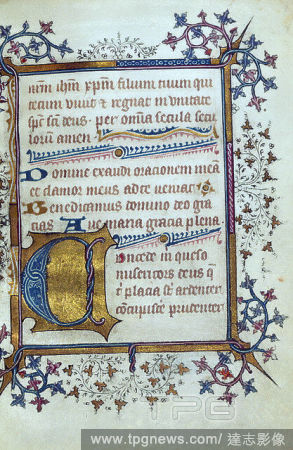 nūm ihm xpm filium tuum qui
tecum vivit et regnat in unitate
spc sci deus. per omīa secula secu
lorum amen.
Domine exaudi orationem mea
et clamor meus ad te veniat
Benedicamus domino deo gra
cias Ave maria gracia plena
Concede in queso
misericors deus q
t placita st ardenter
cōcupisce prudenter
TPG
www.tpgnews.com / 達志影像